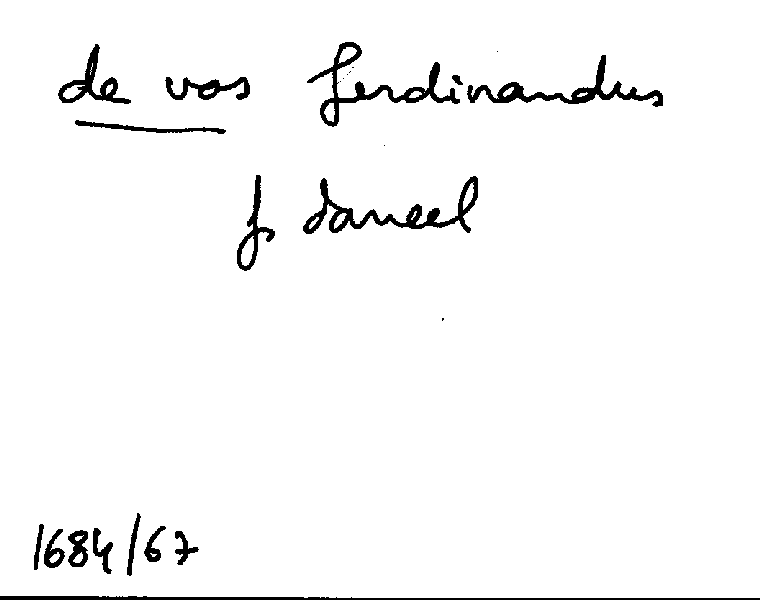 de vos ferdinandus
fs daneel
1684/67